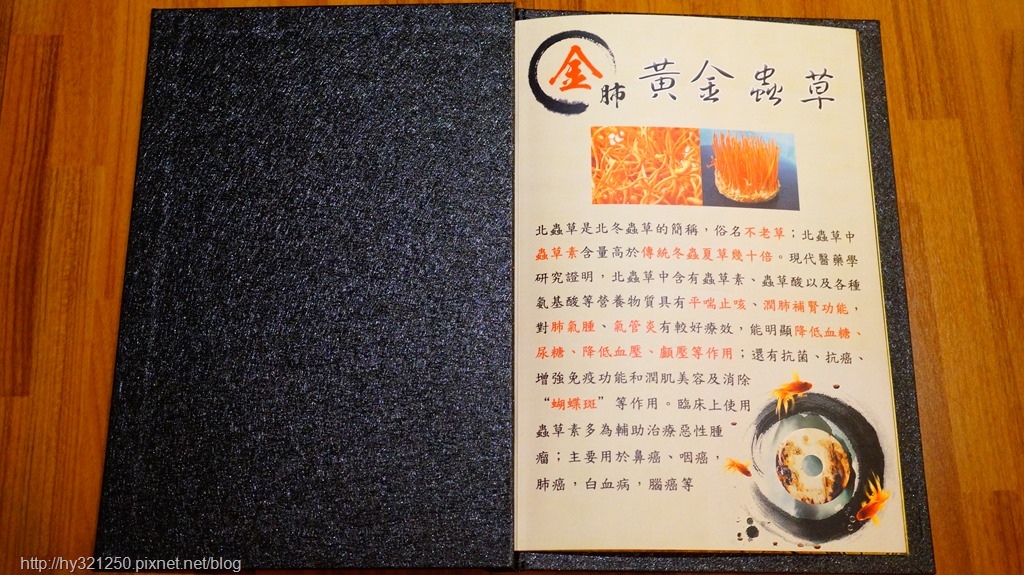 金肺 黃金蟲草
北蟲草是北冬蟲草的簡稱，俗名不老草；北蟲草中
蟲草素含量高於傳統冬蟲夏草幾十倍。現代醫藥學
研究證明，北蟲草中含有蟲草素、蟲草酸以及各種
氨基酸等營養物質具有平喘止咳、潤肺補腎功能，
對肺氣腫、氣管炎有較好療效，能明顯降低血糖、
尿糖、降低血壓、顱壓等作用；還有抗菌、抗癌、
增強免疫功能和潤肌美容及消除
“蝴蝶斑”等作用。臨床上使用
蟲草素多為輔助治療惡性腫
瘤；主要用於鼻癌、咽癌，
肺癌，白血病，腦癌等
http://hy321250.pixnet.net/blog